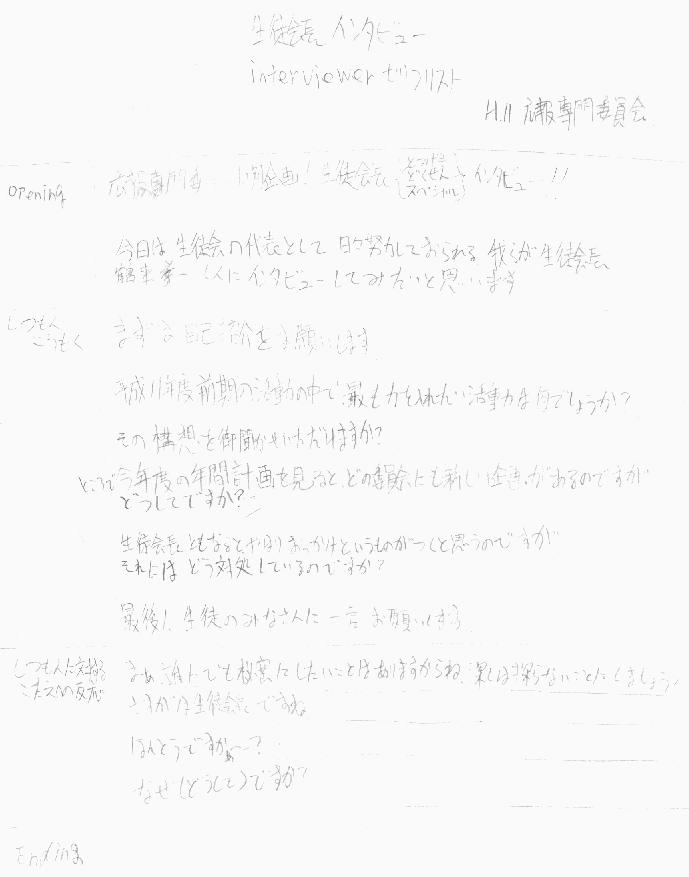 生徒会長 インタビュー
interviewer セリフリスト
H.11 広報専門委員会
opening 広報専門委 企画! 生徒会長 とつげき どくせん スペシャル インタビュー!!
今日は 生徒会の代表として 日々努力しておられる 我らが生徒会長
くんに インタビューしてみたいと思います
しつもん
こうもく
まずは 自己紹介をお願いします
平成11年度前期の活動の中で 最も力を入れたい活動は何でしょうか?
その構想を御聞かせいただけますか?
ところで 今年度の年間計画を見ると、どの委員会にも新しい企画があるのですが
どうしてですか?
生徒会長ともなると、やはり おっかけというものがつくと思うのですが
それには どう対処しているのですか?
最後に 生徒のみなさんに 一言 お願いします
しつもんに対する
こたえへの反応
まぁ 誰にでも秘密にしたいことはありますからね、深くは探らないことにしましょう
さすがは生徒会長ですね
ほんとうですかぁ〜?
なぜ(どうして)ですか?
Ending